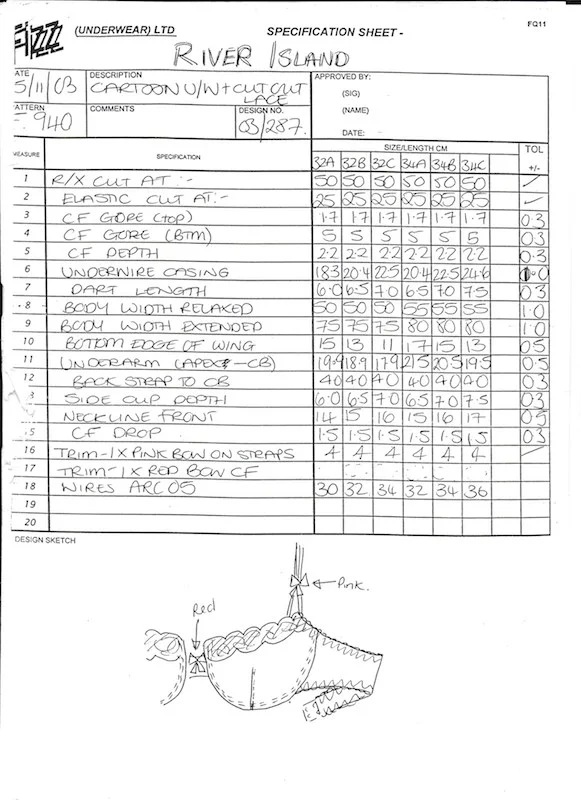 FQ11
FIZZZ (UNDERWEAR) LTD SPECIFICATION SHEET -
RIVER ISLAND
ATE DESCRIPTION APPROVED BY:
5/11/03 CARTOON U/W + CUT OUT LACE
(SIG)
ATTERN COMMENTS DESIGN NO. (NAME)
940 03/287. DATE:
MEASURE SPECIFICATION SIZE/LENGTH CM TOL
32A 32B 32C 34A 34B 34C +/-
1 R/X CUT AT :- 50 50 50 50 50 50
2 ELASTIC CUT AT:- 25 25 25 25 25 25
3 CF GORE (TOP) 1.7 1.7 1.7 1.7 1.7 1.7 0.3
4 CF GORE (BTM) 5 5 5 5 5 5 03
5 CF DEPTH 2.2 2.2 2.2 2.2 2.2 2.2 0.3
6 UNDERWIRE CASING 18.3 20.4 22.5 20.4 22.5 24.6 1.0
7 DART LENGTH 6.0 6.5 7.0 6.5 7.0 7.5 03
8 BODY WIDTH RELAXED 50 50 50 55 55 55 1.0
9 BODY WIDTH EXTENDED 75 75 75 80 80 80 1.0
10 BOTTOM EDGE OF WING 15 13 11 17 15 13 05
11 UNDERARM (APEX - CB) 19.9 18.9 17.9 21.5 20.5 19.5 0.5
12 BACK STRAP TO CB 40 40 40 40 40 40 03
3 SIDE CUP DEPTH 6.0 6.5 7.0 6.5 7.0 7.5 03
4 NECKLINE FRONT 14 15 16 15 16 17 05
.5 CF DROP 1.5 1.5 1.5 1.5 1.5 1.5 03
16 TRIM-1X PINK BOW ON STRAPS 4 4 4 4 4 4
17 TRIM-1X RED BOW CF
18 WIRES ARC 05 30 32 34 32 34 36
19
20
DESIGN SKETCH
Pink.
Red